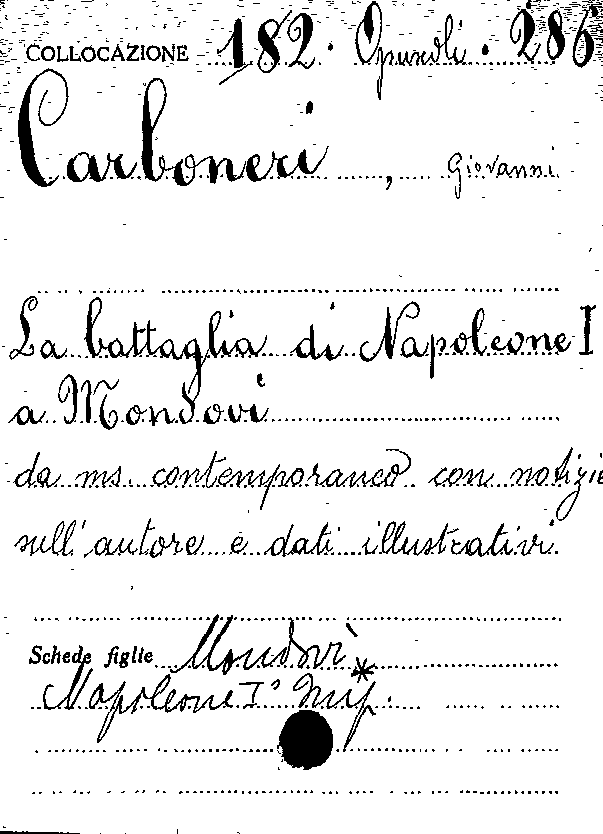 COLLOCAZIONE 182. Opuscoli. 286
Carboneri, Giovanni
La battaglia di Napoleone I
a Mondovì
da ms. contemporaneo con notizie
sull'autore e dati illustrativi.
Schede figlie Mondovì
Napoleone I° Imp.*